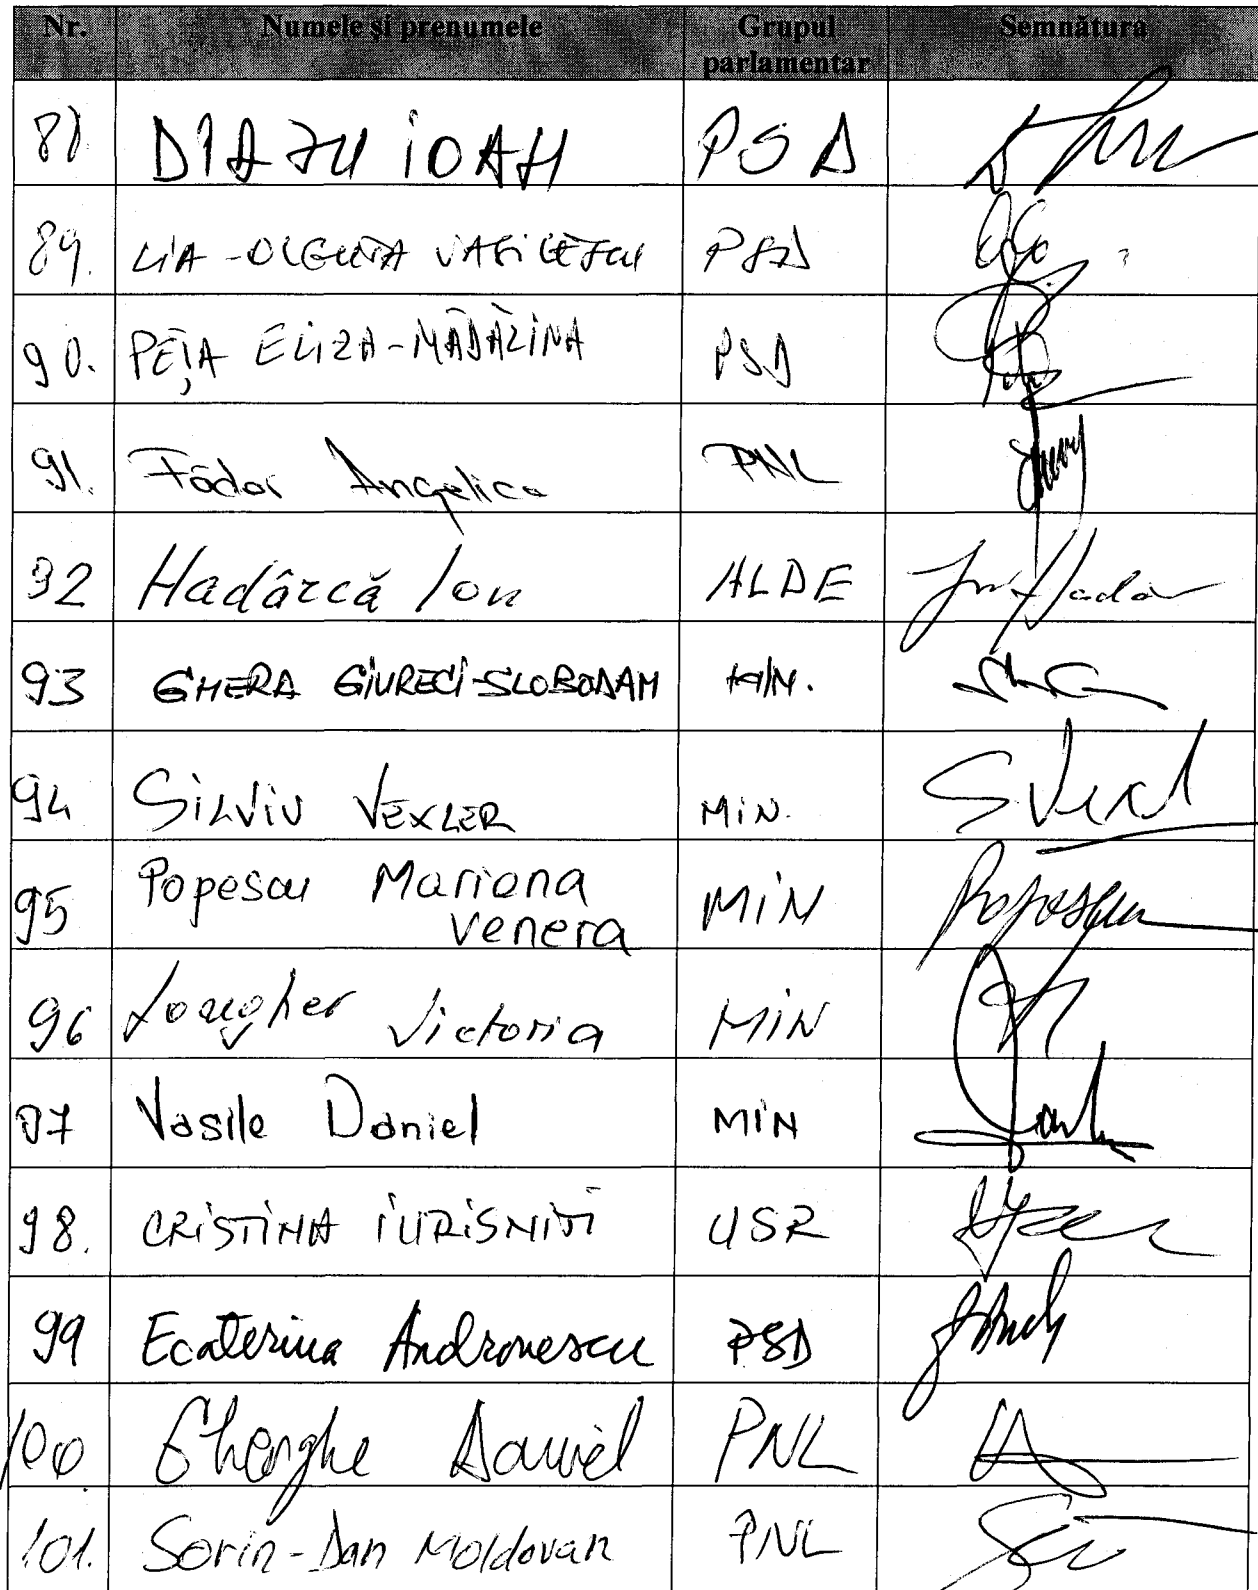 Nr. Numele și prenumele Grupul parlamentar Semnătura
88. DIAZU IOAN PSD
89. LIA-OLGUȚA VASILESCU PSD
90. PEȚA ELIZA-MĂDĂLINA PSD
91. Fădor Angelica PNL
92 Hadârcă Ion ALDE
93 GHERA GIURECI-SLOBODAN MIN.
94 SILVIU VEXLER MIN.
95 Popescu Mariana Venera MIN Popescu
96 Longher Victoria MIN
97 Vasile Daniel MIN
98. CRISTINA IURISNIȚI USR
99 Ecaterina Andronescu PSD
100 Gheorghe Daniel PNL
101. Sorin-Dan Moldovan PNL